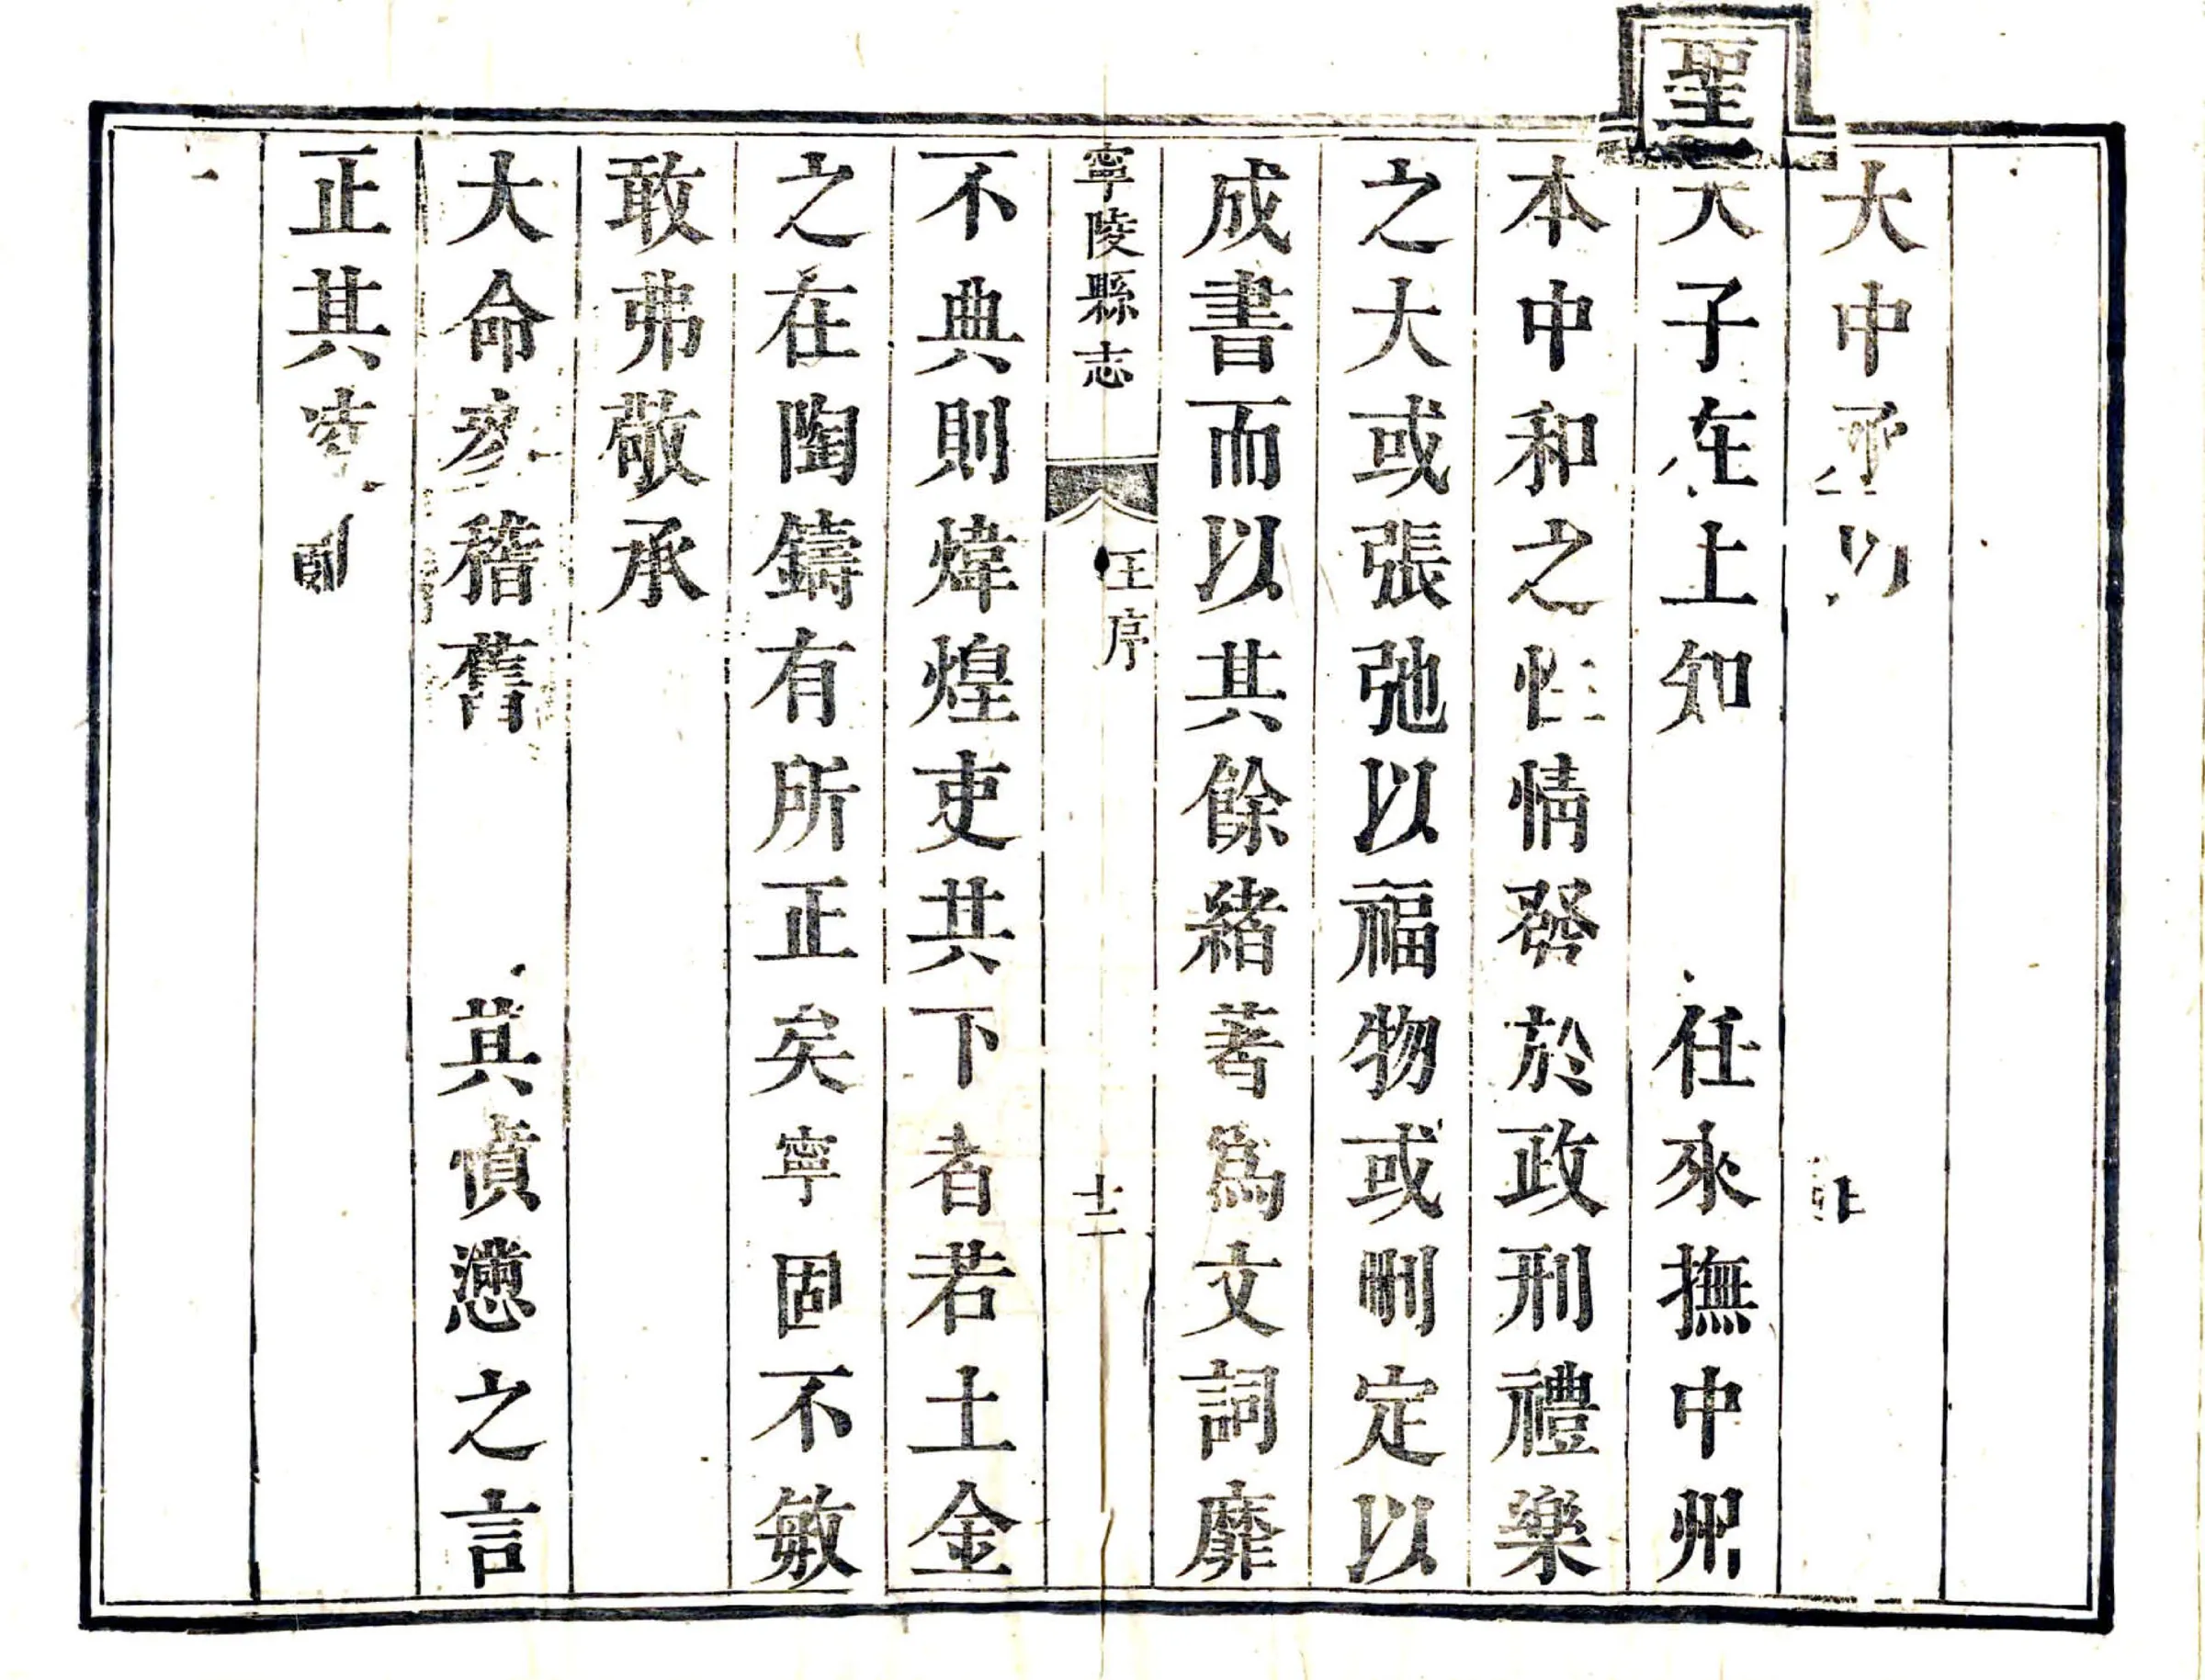 大中丞
聖天子在上知 任來撫中州
本中和之性情發於政刑禮樂
之大或張弛以福物或刪定以
成書而以其餘緒著爲文詞靡
寧陵縣志 王序 十二
不典則煒煌吏其下者若土金
之在陶鑄有所正矣寧固不敏
敢弗敬承
大命爰稽舊 其僨懘之言
正其